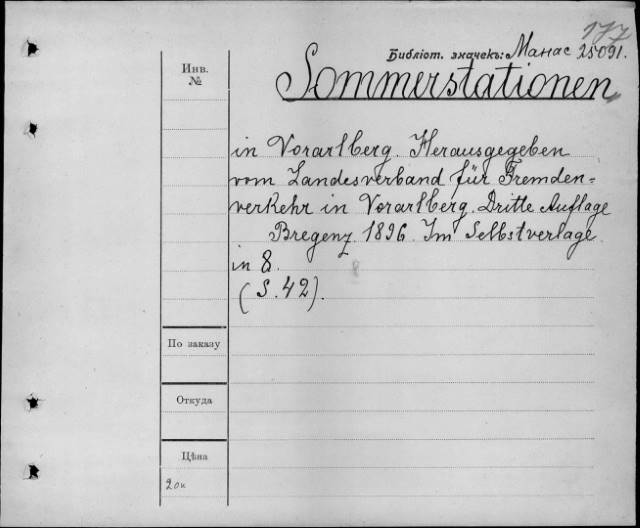 177
Библіот. значекъ: Манас 25091.
Инв.
№
Sommerstationen
in Vorarlberg. Herausgegeben
vom Landesverband für Fremden=
verkehr in Vorarlberg. Dritte Auflage
Bregenz. 1896. Im Selbstverlage.
in 8.
(S. 42).
По заказу
Откуда
Цѣна
20к